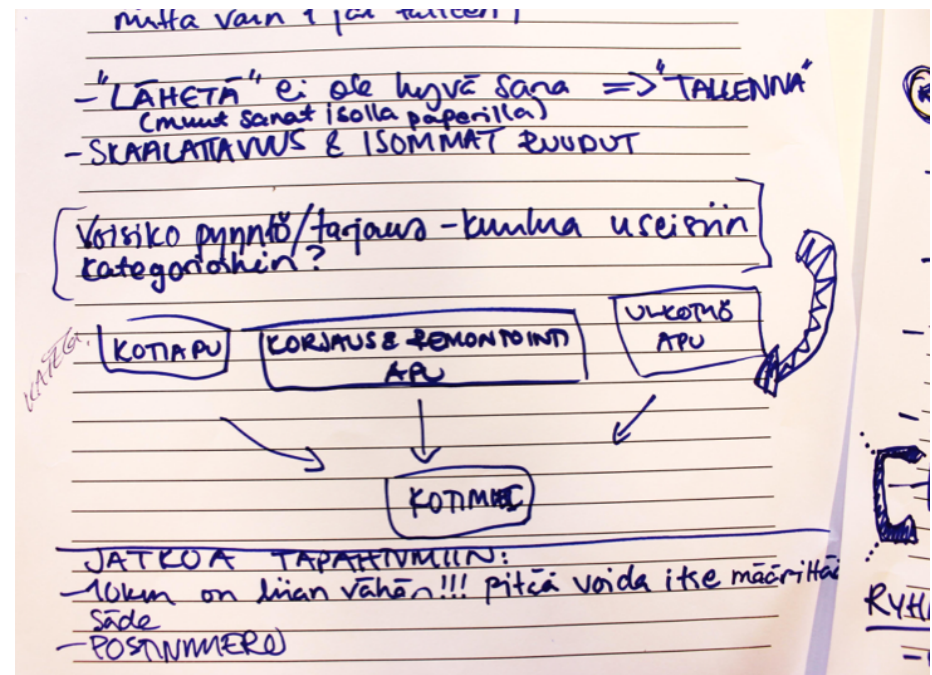 mutta vain 1 jää talteen!
- "LÄHETÄ" ei ole hyvä sana => "TALLENNA"
(muut sanat isolla paperilla)
- SKAALATTAVUUS & ISOMMAT RUUDUT
Voisiko pyyntö/tarjous - kuulua useisiin
kategorioihin?
KATEG.
KOTIAPU
KORJAUS & REMONTOINTI
APU
ULKOTYÖ
APU
KOTIMIES
JATKOA TAPAHTUMIIN:
- 10km on liian vähän!!! pitää voida itse määrittää
säde
- POSTINUMERO
RYH